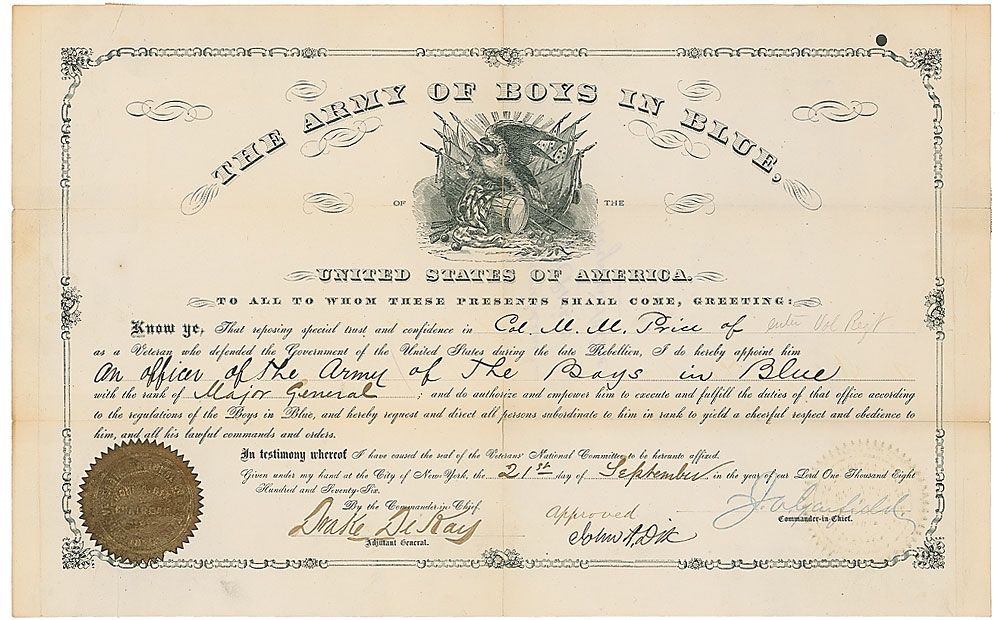 THE ARMY OF BOYS IN BLUE,
OF THE
UNITED STATES OF AMERICA.
TO ALL TO WHOM THESE PRESENTS SHALL COME, GREETING:
Know ye, That reposing special trust and confidence in Col. M. M. Price of enter Vol Regt
as a Veteran who defended the Government of the United States during the late Rebellion, I do hereby appoint him
An officer of the Army of The Boys in Blue
with the rank of Major General ; and do authorize and empower him to execute and fulfill the duties of that office according
to the regulations of the Boys in Blue, and hereby request and direct all persons subordinate to him in rank to yield a cheerful respect and obedience to
him, and all his lawful commands and orders.
In testimony whereof I have caused the seal of the Veterans' National Committee to be hereunto affixed.
Given under my hand at the City of New-York, the 21st day of September, in the year of our Lord One Thousand Eight
Hundred and Seventy-Six.
By the Commander-in-Chief.
Drake DeKay
Adjutant General.
Approved
John A. Dix
J. A. Garfield
Commander-in-Chief.